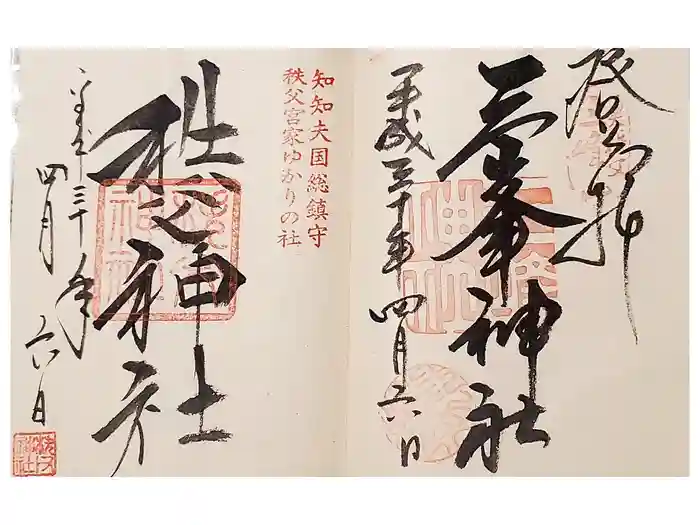 登拝
三峯神社
平成三十年四月六日
知知夫国総鎮守
秩父宮家ゆかりの社
秩父神社
平成三十年
四月六日